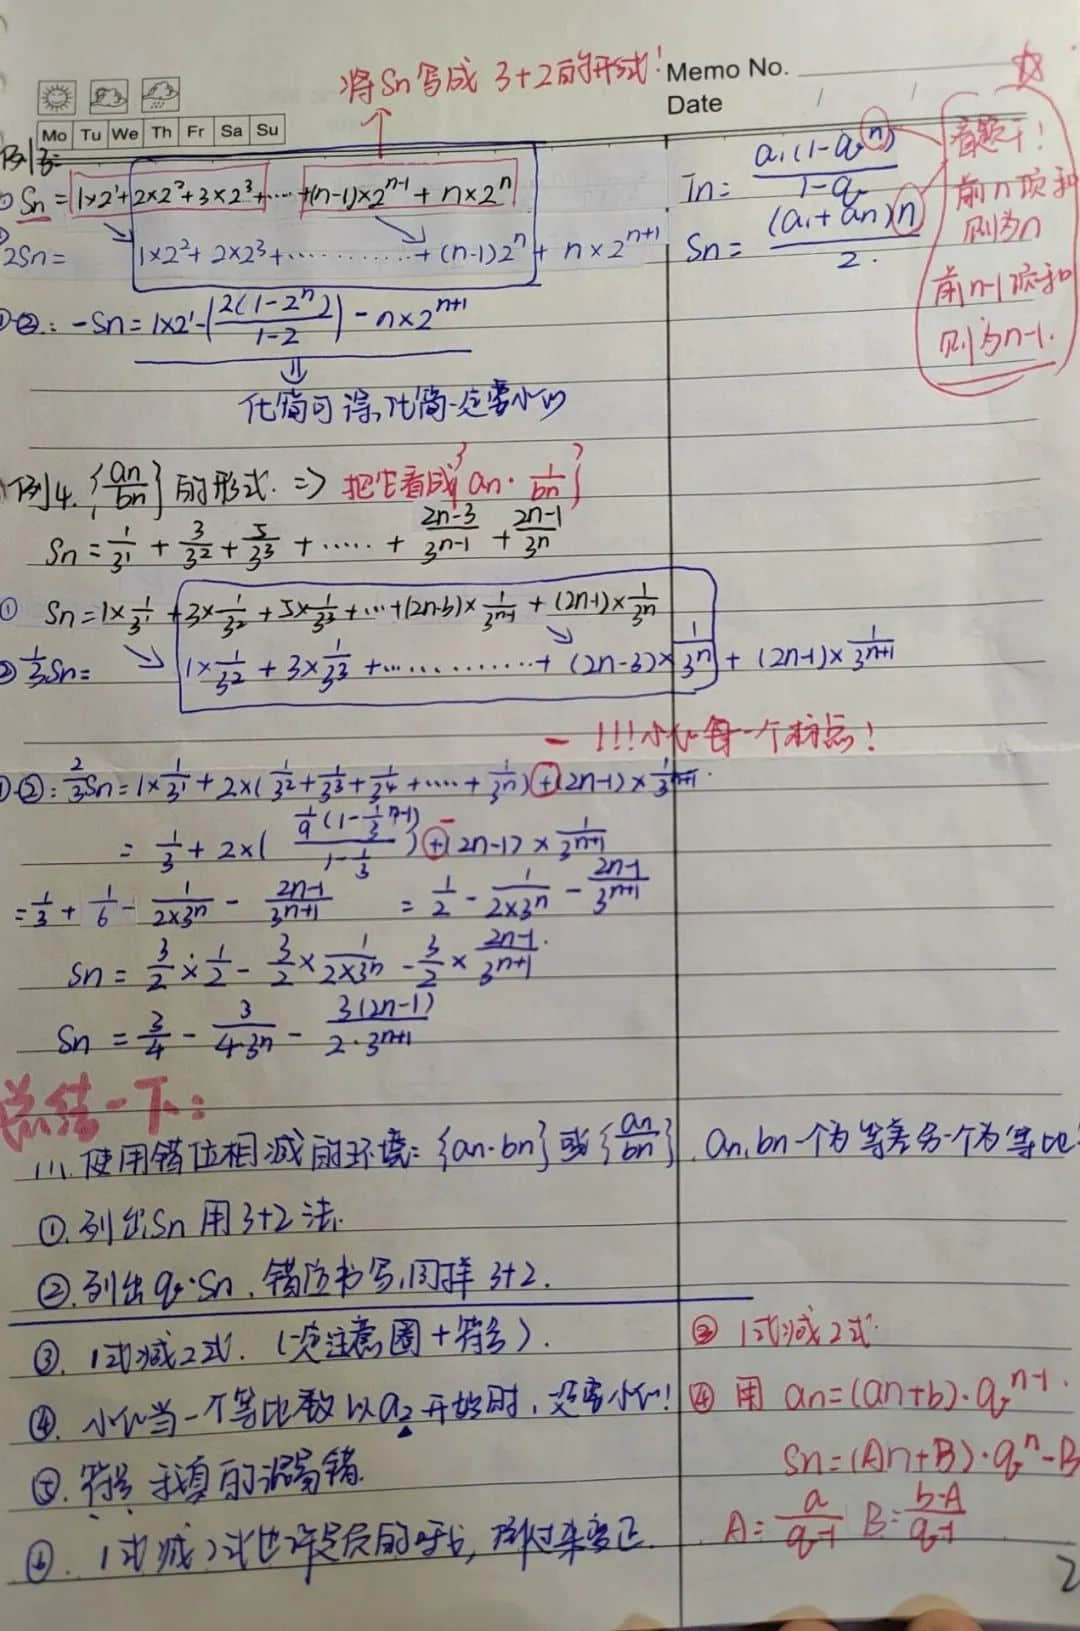 将Sn写成 3+2的形式!
Memo No.
Date
Mo Tu We Th Fr Sa Su
例3:
① Sn = 1×2¹+2×2²+3×2³+……+(n-1)×2ⁿ⁻¹ + n×2ⁿ
② 2Sn = 1×2²+2×2³+…………+(n-1)2ⁿ + n×2ⁿ⁺¹
①-②: -Sn = 1×2¹-(2(1-2ⁿ)/(1-2)) - n×2ⁿ⁺¹
化简可得,化简一定要小心
Tn = a₁(1-qⁿ)/(1-q)
Sn = (a₁+an)n/2.
看题干!
前n项和
则为n
前n-1项和
则为n-1.
例4. {an/bn} 的形式. => 把它看成{an·1/bn}
Sn = 1/3¹ + 3/3² + 5/3³ + …… + (2n-3)/3ⁿ⁻¹ + (2n-1)/3ⁿ
① Sn = 1×1/3¹ + 3×1/3² + 5×1/3³ + … + (2n-3)×1/3ⁿ⁻¹ + (2n-1)×1/3ⁿ
② 1/3Sn = 1×1/3² + 3×1/3³ + ………… + (2n-3)×1/3ⁿ + (2n-1)×1/3ⁿ⁺¹
- !!!小心每一个标点!
①-②: 2/3Sn = 1×1/3¹ + 2×(1/3² + 1/3³ + 1/3⁴ + …… + 1/3ⁿ) + (2n-1)×1/3ⁿ⁺¹.
= 1/3 + 2×(1/9(1-1/3ⁿ⁻¹)/(1-1/3)) + (2n-1)×1/3ⁿ⁺¹
-
= 1/3 + 1/6 - 1/(2×3ⁿ) - (2n-1)/3ⁿ⁺¹ = 1/2 - 1/(2×3ⁿ) - (2n-1)/3ⁿ⁺¹
Sn = 3/2×1/2 - 3/2×1/(2×3ⁿ) - 3/2×(2n-1)/3ⁿ⁺¹.
Sn = 3/4 - 3/(4·3ⁿ) - 3(2n-1)/(2·3ⁿ⁺¹)
总结一下:
(1). 使用错位相减的环境: {an·bn}或{an/bn}, an,bn一个为等差另一个为等比
①.列出Sn 用3+2法.
②.列出q·Sn, 错位书写,同样3+2.
③. 1式减2式. (一定注意圈+符号).
④. 小心当一个等比数以a₂开始时,一定要小心!
⑤. 符号 我真的泥易错.
⑥. 1式减2式也许是负的
③ 1式减2式.
④ 用 an=(an+b)·qⁿ⁻¹.
Sn=(An+B)·qⁿ-B
A=a/(q-1) B=(b-A)/(q-1)
2